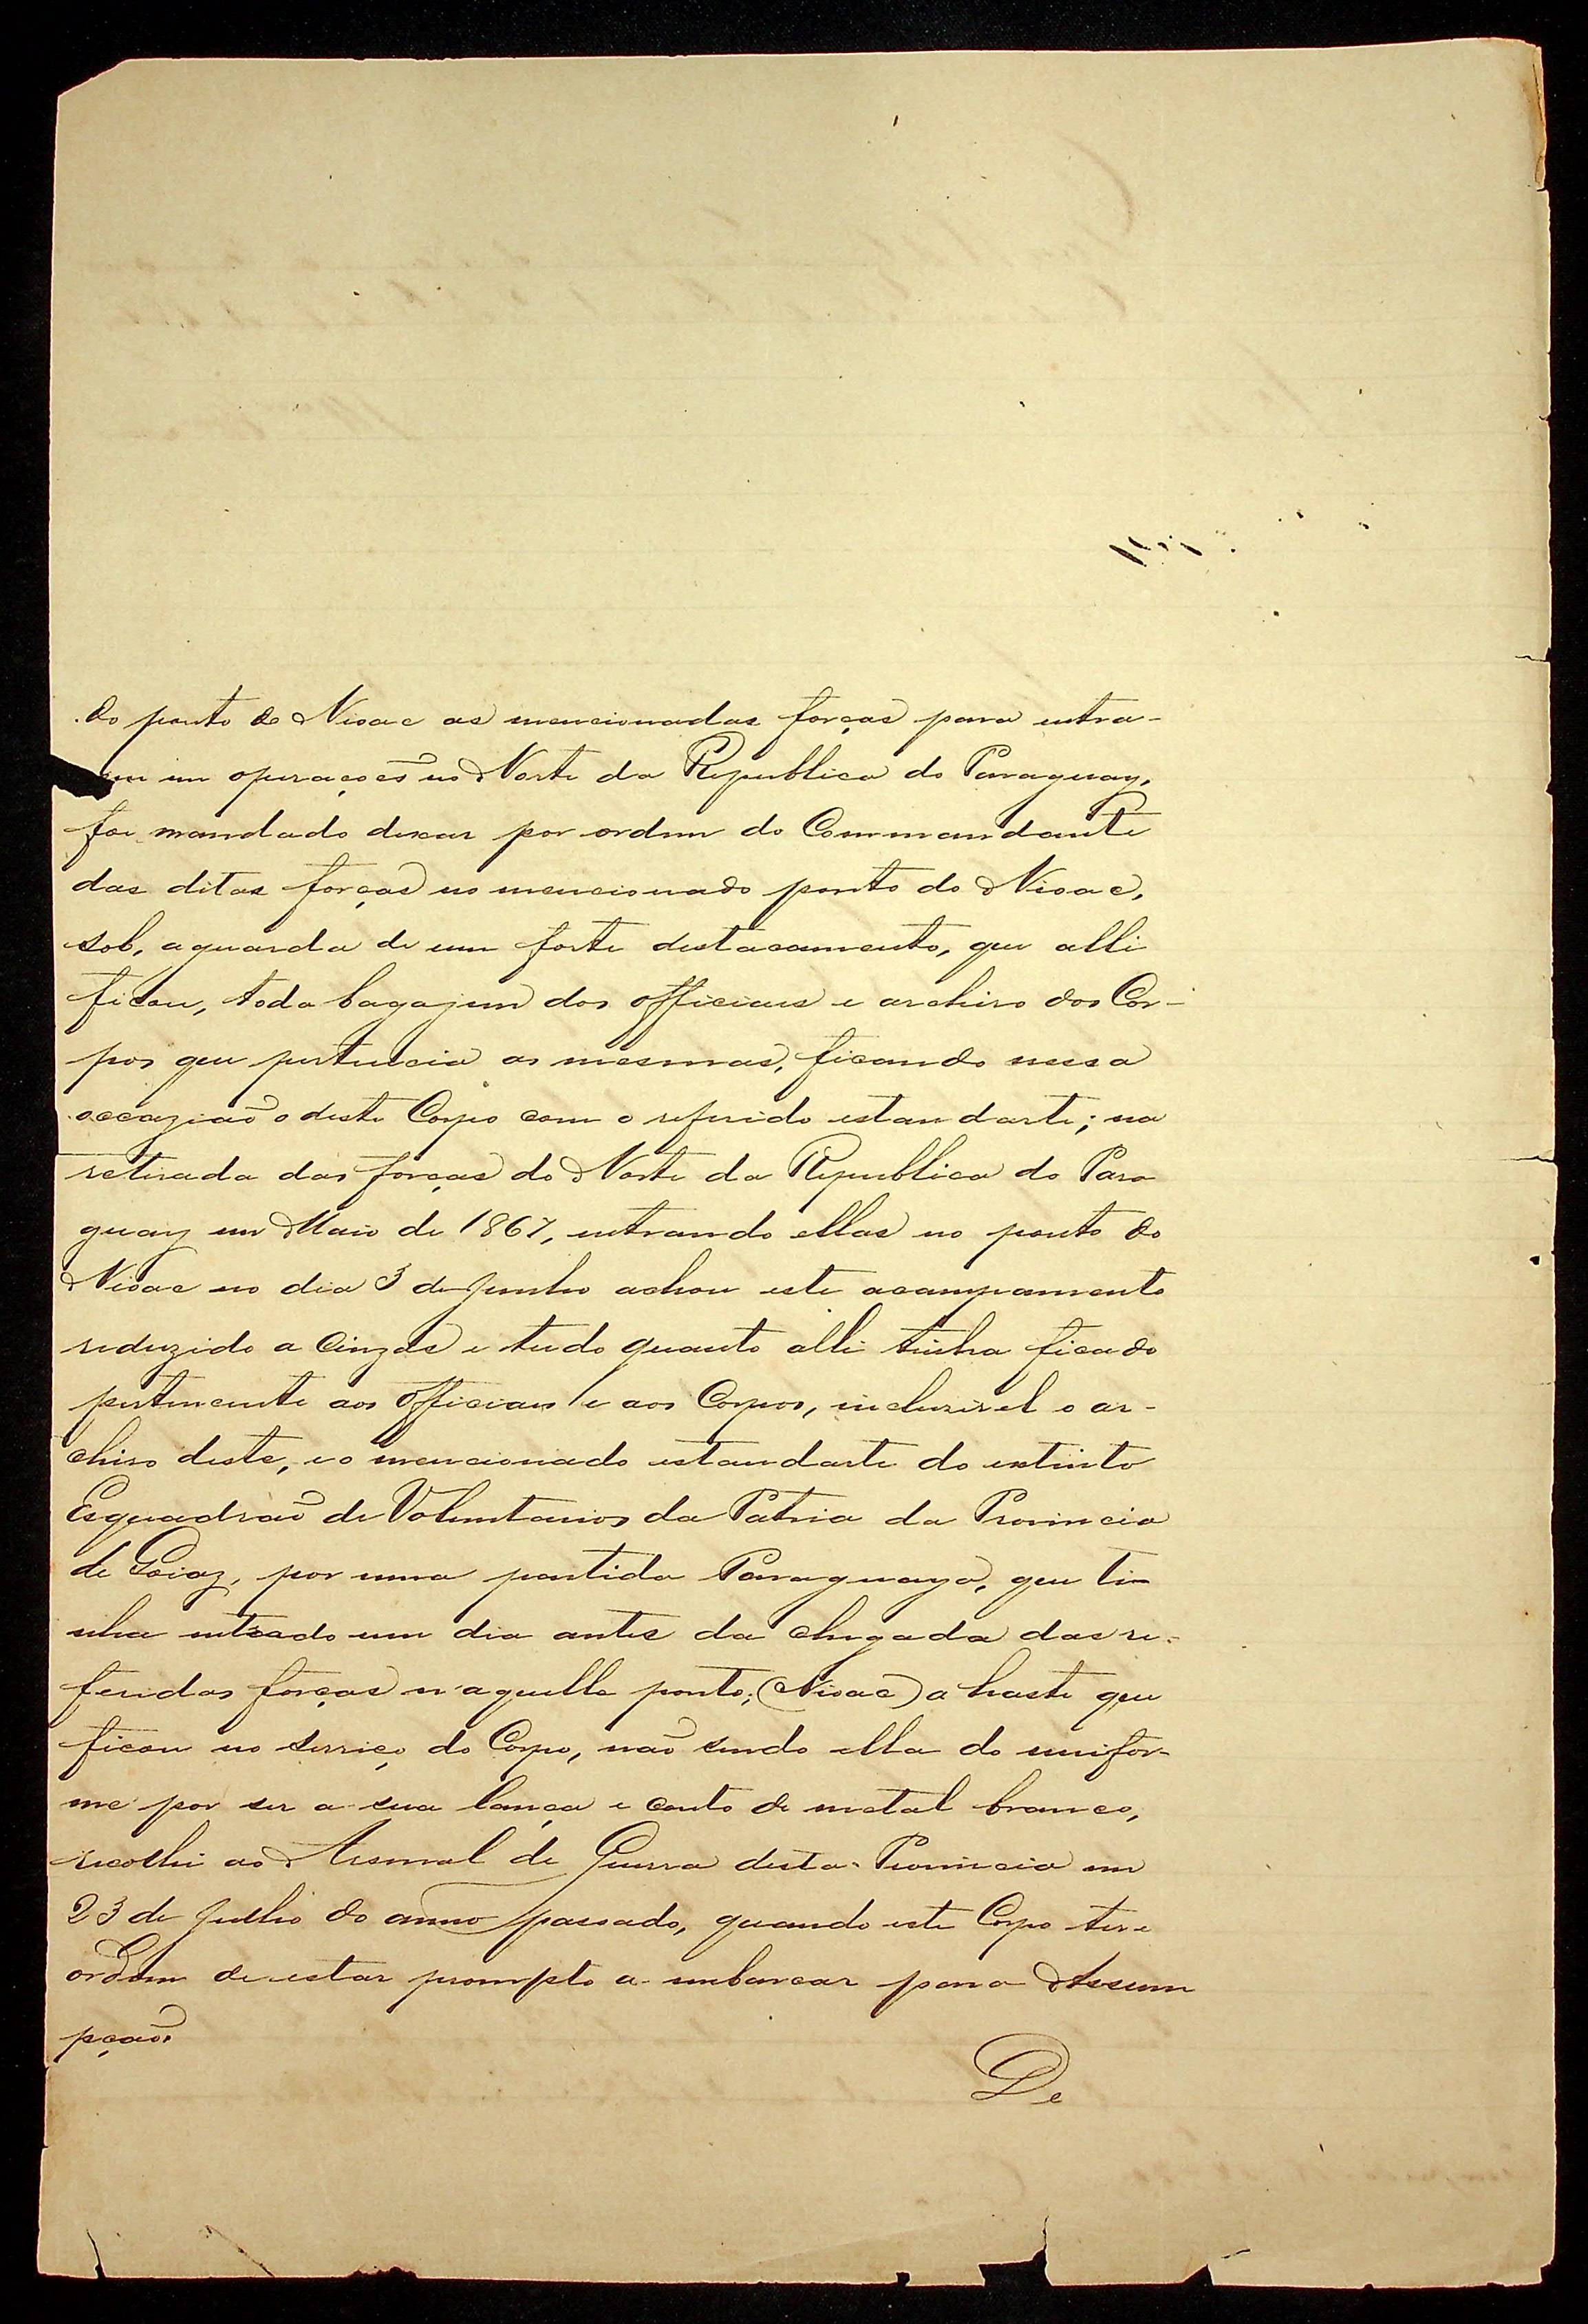 do ponto de Nioac as mencionadas forças para entra-
em em operações no Norte da Republica do Paraguay,
foi mandado deixar por ordem do Commandante
das ditas forças no mencionado ponto do Nioac,
sob, aguarda de um forte destacamento, que alli
ficou, toda bagajem dos officiaes e archivo dos Cor-
pos que pertencia as mesmas, ficando nessa
occazião o deste Corpo com o referido estandarte; na
retirada das forças do Norte da Republica do Para
guay em Maio de 1867, entrando ellas no ponto do
Nioac no dia 3 de Junho achou este acampamento
reduzido a Cinzas e tudo quanto alli tinha ficado
pertencente aos Officiaes e aos Corpos, incluzivel o ar-
chivo deste, e o mencionado estandarte do extinto
Esquadrão de Voluntarios da Patria da Provincia
de Goiaz, por uma partida Paraguaya, que ti-
nha entrado um dia antes da chegada das re-
feridas forças n'aquelle ponto; (Nioac) a haste que
ficou no serviço do Corpo, não sendo ella do unifor-
me por ser a sua lança e conto de metal branco,
recolhi ao Arsenal de Guerra desta Provincia em
23 de Julho do anno passado, quando este Corpo teve
ordem de estar prompto a embarcar para Assum
pção.
De